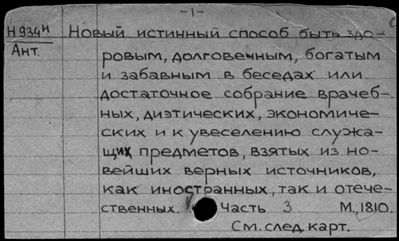 -1-
Н934н Новый истинный способ быть здо-
Ант. ровым, долговечным, богатым
и забавным в беседах или
достаточное собрание врачеб-
ных, диэтических, экономиче-
ских и к увеселению служа-
щих предметов, взятых из но-
вейших верных источников,
как иностранных, так и отече-
ственных. Часть 3 М., 1810.
См. след. карт.